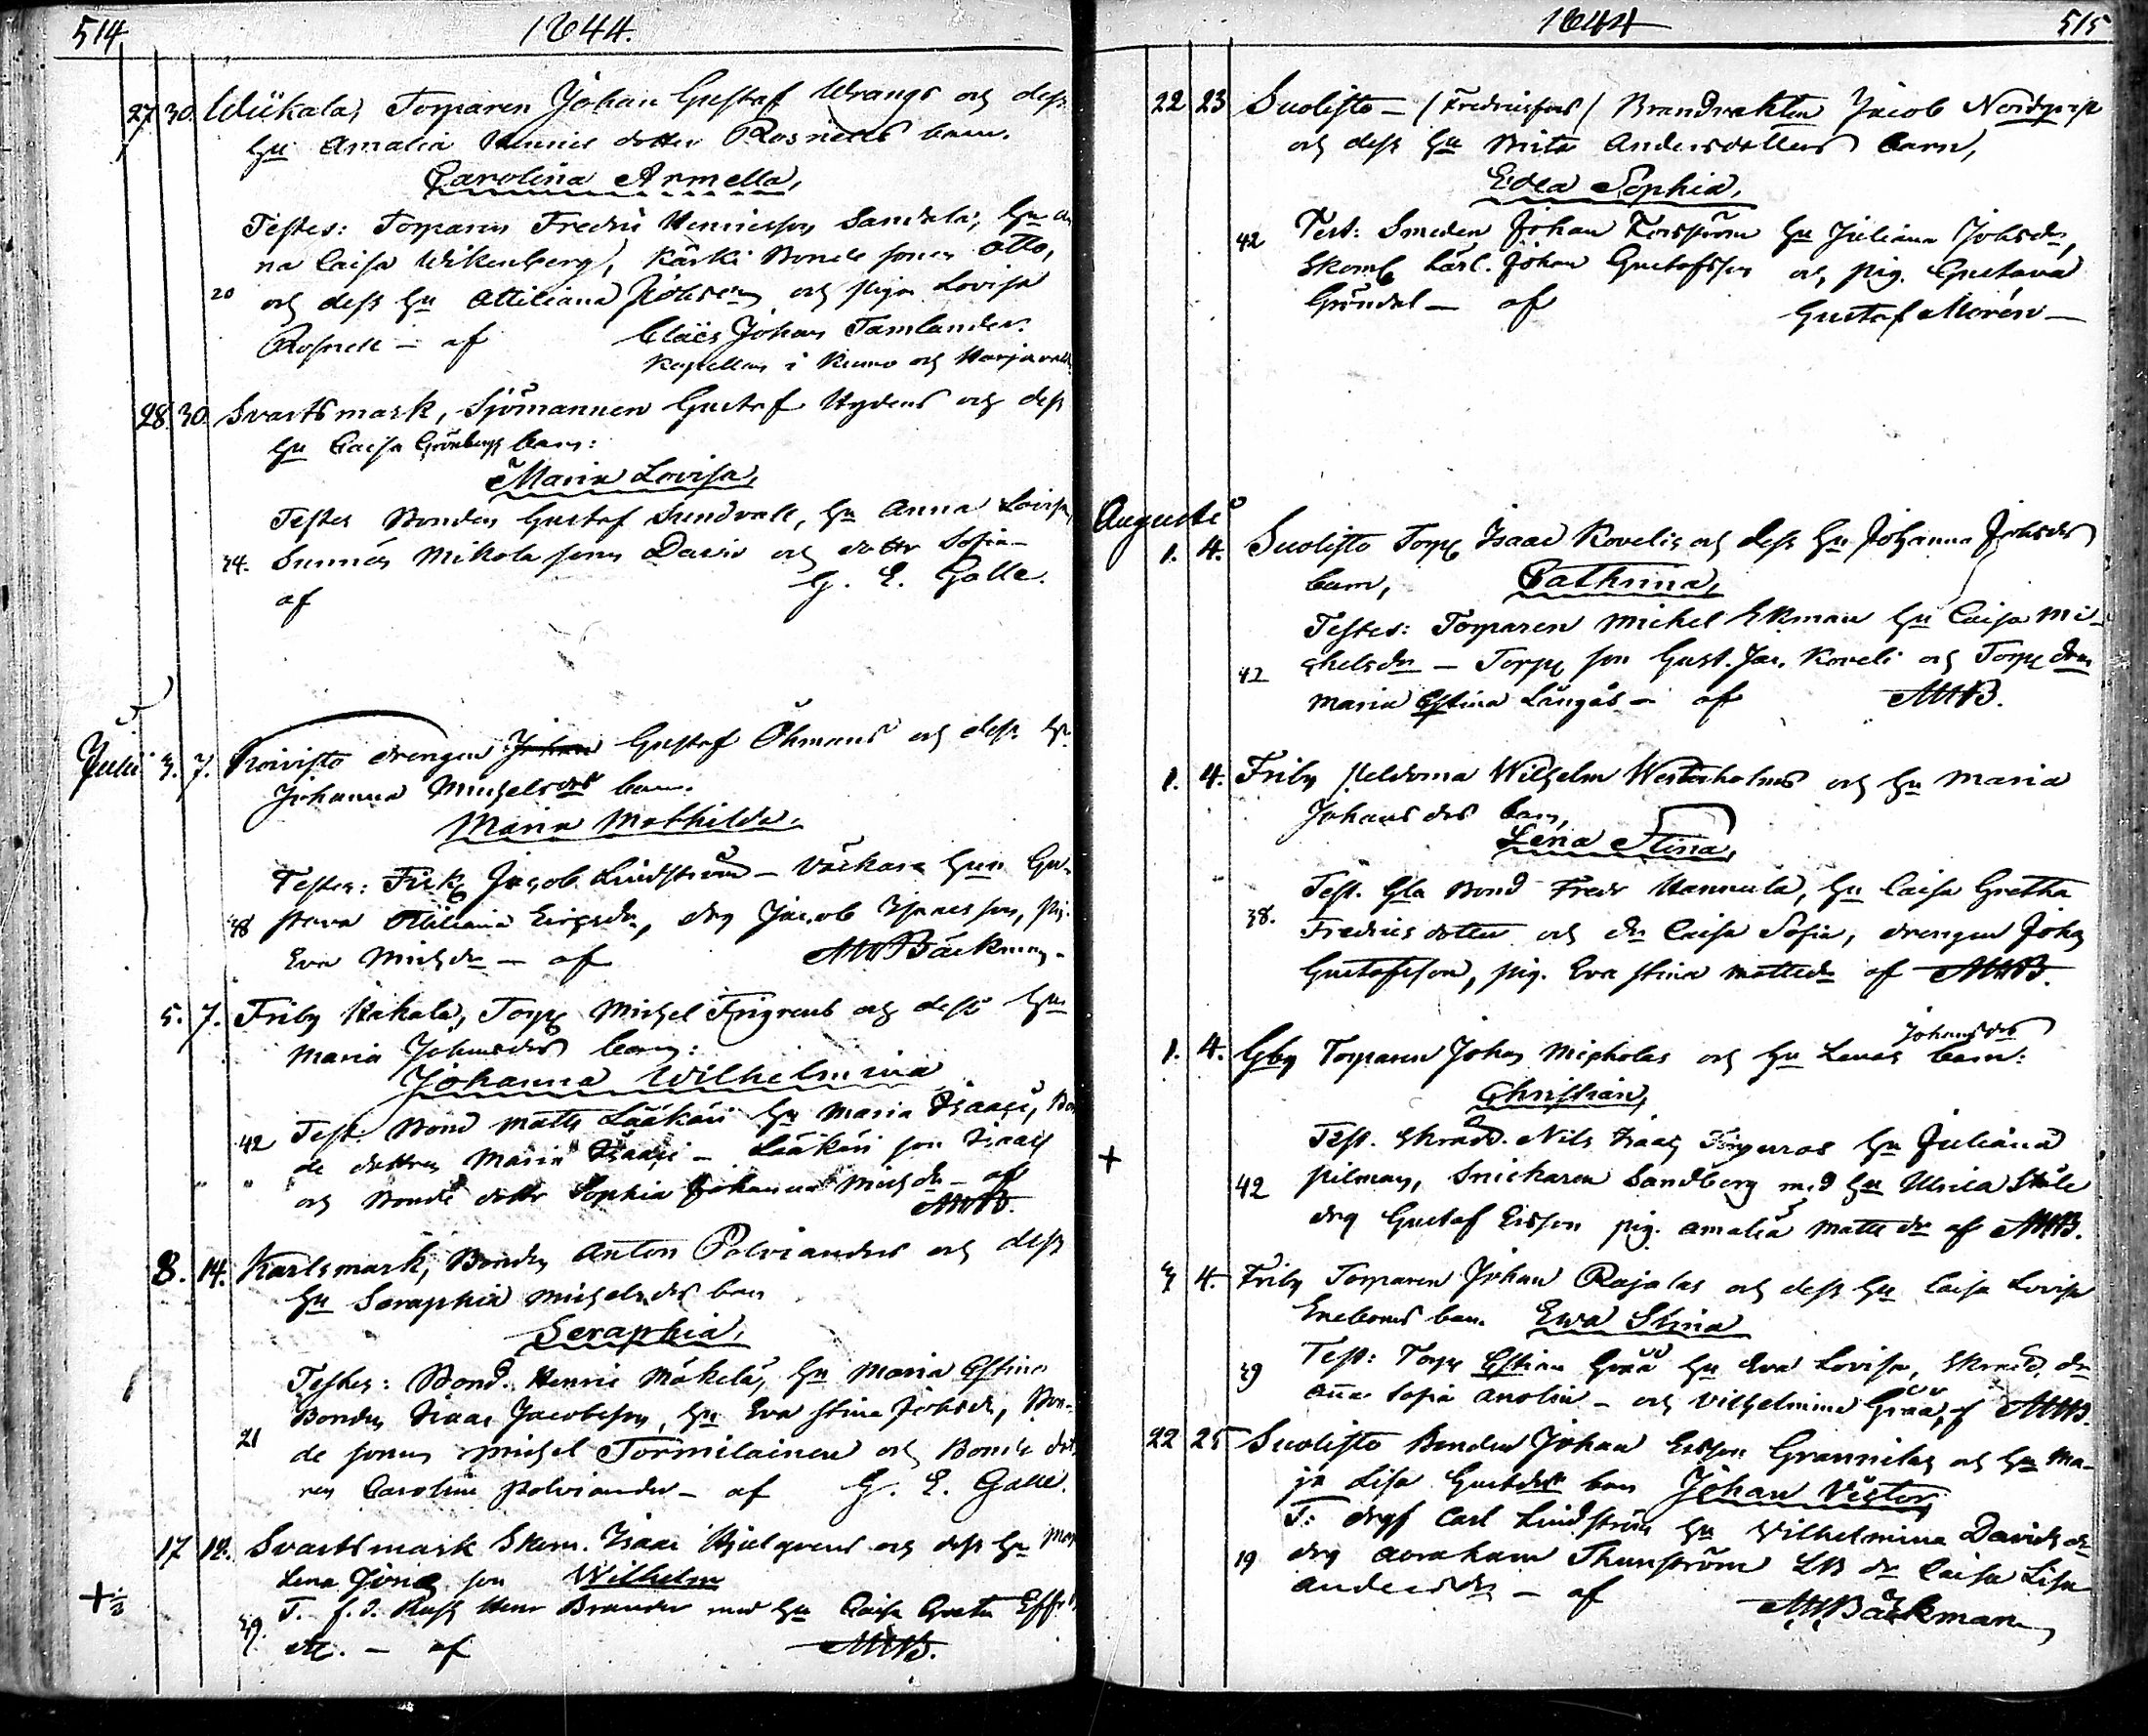 514 1844.
27 30. Wiikala, Torparen Johan Gustaf Wrangs och dess
Hu Amalia Henrics dotter Rosnells barn.
Carolina Armella,
Testes: Torparen Fredric Henricsson Sandala, Hu An
na Caisa Wikenberg, Kärki Bonde sonen Otto,
20 och dess Hu Ottiliana och pigan Lovisa
Rosnell - af Claës Johan Tamlander.
Kapellan i Kumo och Harjavalta
28. 30. Svartsmark, Sjömannen Gustaf Nydens och dess
Hu Caisa Grönbergs barn:
Maria Lovisa,
Testes Bonden Gustaf Sundvall, Hu Anna Lovisa,
34. Sunnäs Mikola sonen David och dottr Sofia -
af G. E. Galle.
Juli 3. 7. Koivisto drengen Johan Gustaf Öhmans och dess Hu
Johanna Michelsdrs barn.
Maria Mathilda.
Testes: Jacob Lindström - Hun Gu-
48 stava Ottiliana Ericsdr, drg Jacob Isaacsson, pig.
Eva Michdr - af AWBäckman.
5. 7. Friby Kakala, Torp Michel Frigrens och dess Hu
Maria Johansdrs barn:
Johanna Wilhelmina
42 Test. Bond Matts Lääkäri Hu Maria Isaacs, Bon
de dottren Maria Isaacs - Lääkäri son Isaac
" " och Bonde dottr Sophia Johanna Michdr - af
AWB.
8. 14. Karlsmark, Bonden Anton Polvianders och dess
Hu Seraphia Michelsdrs barn
Seraphia,
Testes: Bond. Henric Mäkelä, Hu Maria Christina
Bonden Isaac Jacobsson, Hu Eva Stina Johsdr, Bon-
21 de sonen Michel Tormilainen och Bonde dott
ren Carolina Polviander - af G. E. Galle.
17 18. Svartsmark Skom. Isaac Hjulgrens och dess Hu
+ Lena Jönes son Wilhelm
T. f. d. Henr Brander med Hu Caisa Greta
39. etc. - af AWB.
1844 515
22 23 Suolisto - (Fredricsfors) Brandvakten Jacob Nordqvist
och dess Hu Brita Andersdotters barn,
Edla Sophia,
42 Test: Smeden Johan Forsström Hu Juliana Johsdr,
Skom lärl. Johan Gustafsson och pig. Gustava
Gröndal - af Gustaf Morén -
Augusti
1. 4. Suolisto Torp Isaac Kovelis och dess Hu Johanna Johsdrs
barn, Cathrina,
Testes: Torparen Michel Ekman Hu Caisa Mi-
42 chelsdr - Torp son Gust. Jac. Koveli och Torp drn
Maria Christina Långås - af AWB.
1. 4. Friby Wilhelm Westerholms och Hu Maria
Johansdrs barn,
Lena Stina,
Test. Gla Bond Fredr Hannula, Hu Caisa Gretha
38. Fredricsdotter och dr Caisa Sofia, drengen Johan
Gustafsson, pig. Eva Stina Mattsdr af AWB.
1. 4. Gby Torparen Johan och Hu Lenas Johansdrs barn:
Christian,
+ Test. Skradd. Nils Isaac Hu Juliana
42 Pilman, Snickaren Sandberg med Hu Ulrica Ståle
drg Gustaf Ersson pig. Amalia Mattsdr af AWB.
3 4. Friby Torparen Johan Rajalas och dess Hu Caisa Lovisa
Eneboms barn. Ewa Stina
39 Test: Torp Christian Grää Hu Eva Lovisa, Skradd. dr
Anna Sofia Anolin - och Vilhelmina Grää, af AWB.
22 25 Suolisto Bonden Johan Ersson Grannilas och Hu Ma-
ja Lisa Gustdrs barn Johan Victor,
T: Carl Lindström Hu Wilhelmina Davidsdr
19 drg Abraham Thunström LB dr Caisa Lisa
Andersdr - af AWBäckman